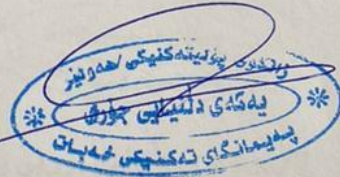 زانکۆی پۆلیتەکنیکی/هەولێر
یەکەی دڵنیایی جۆری
پەیمانگای تەکنیکی خەبات